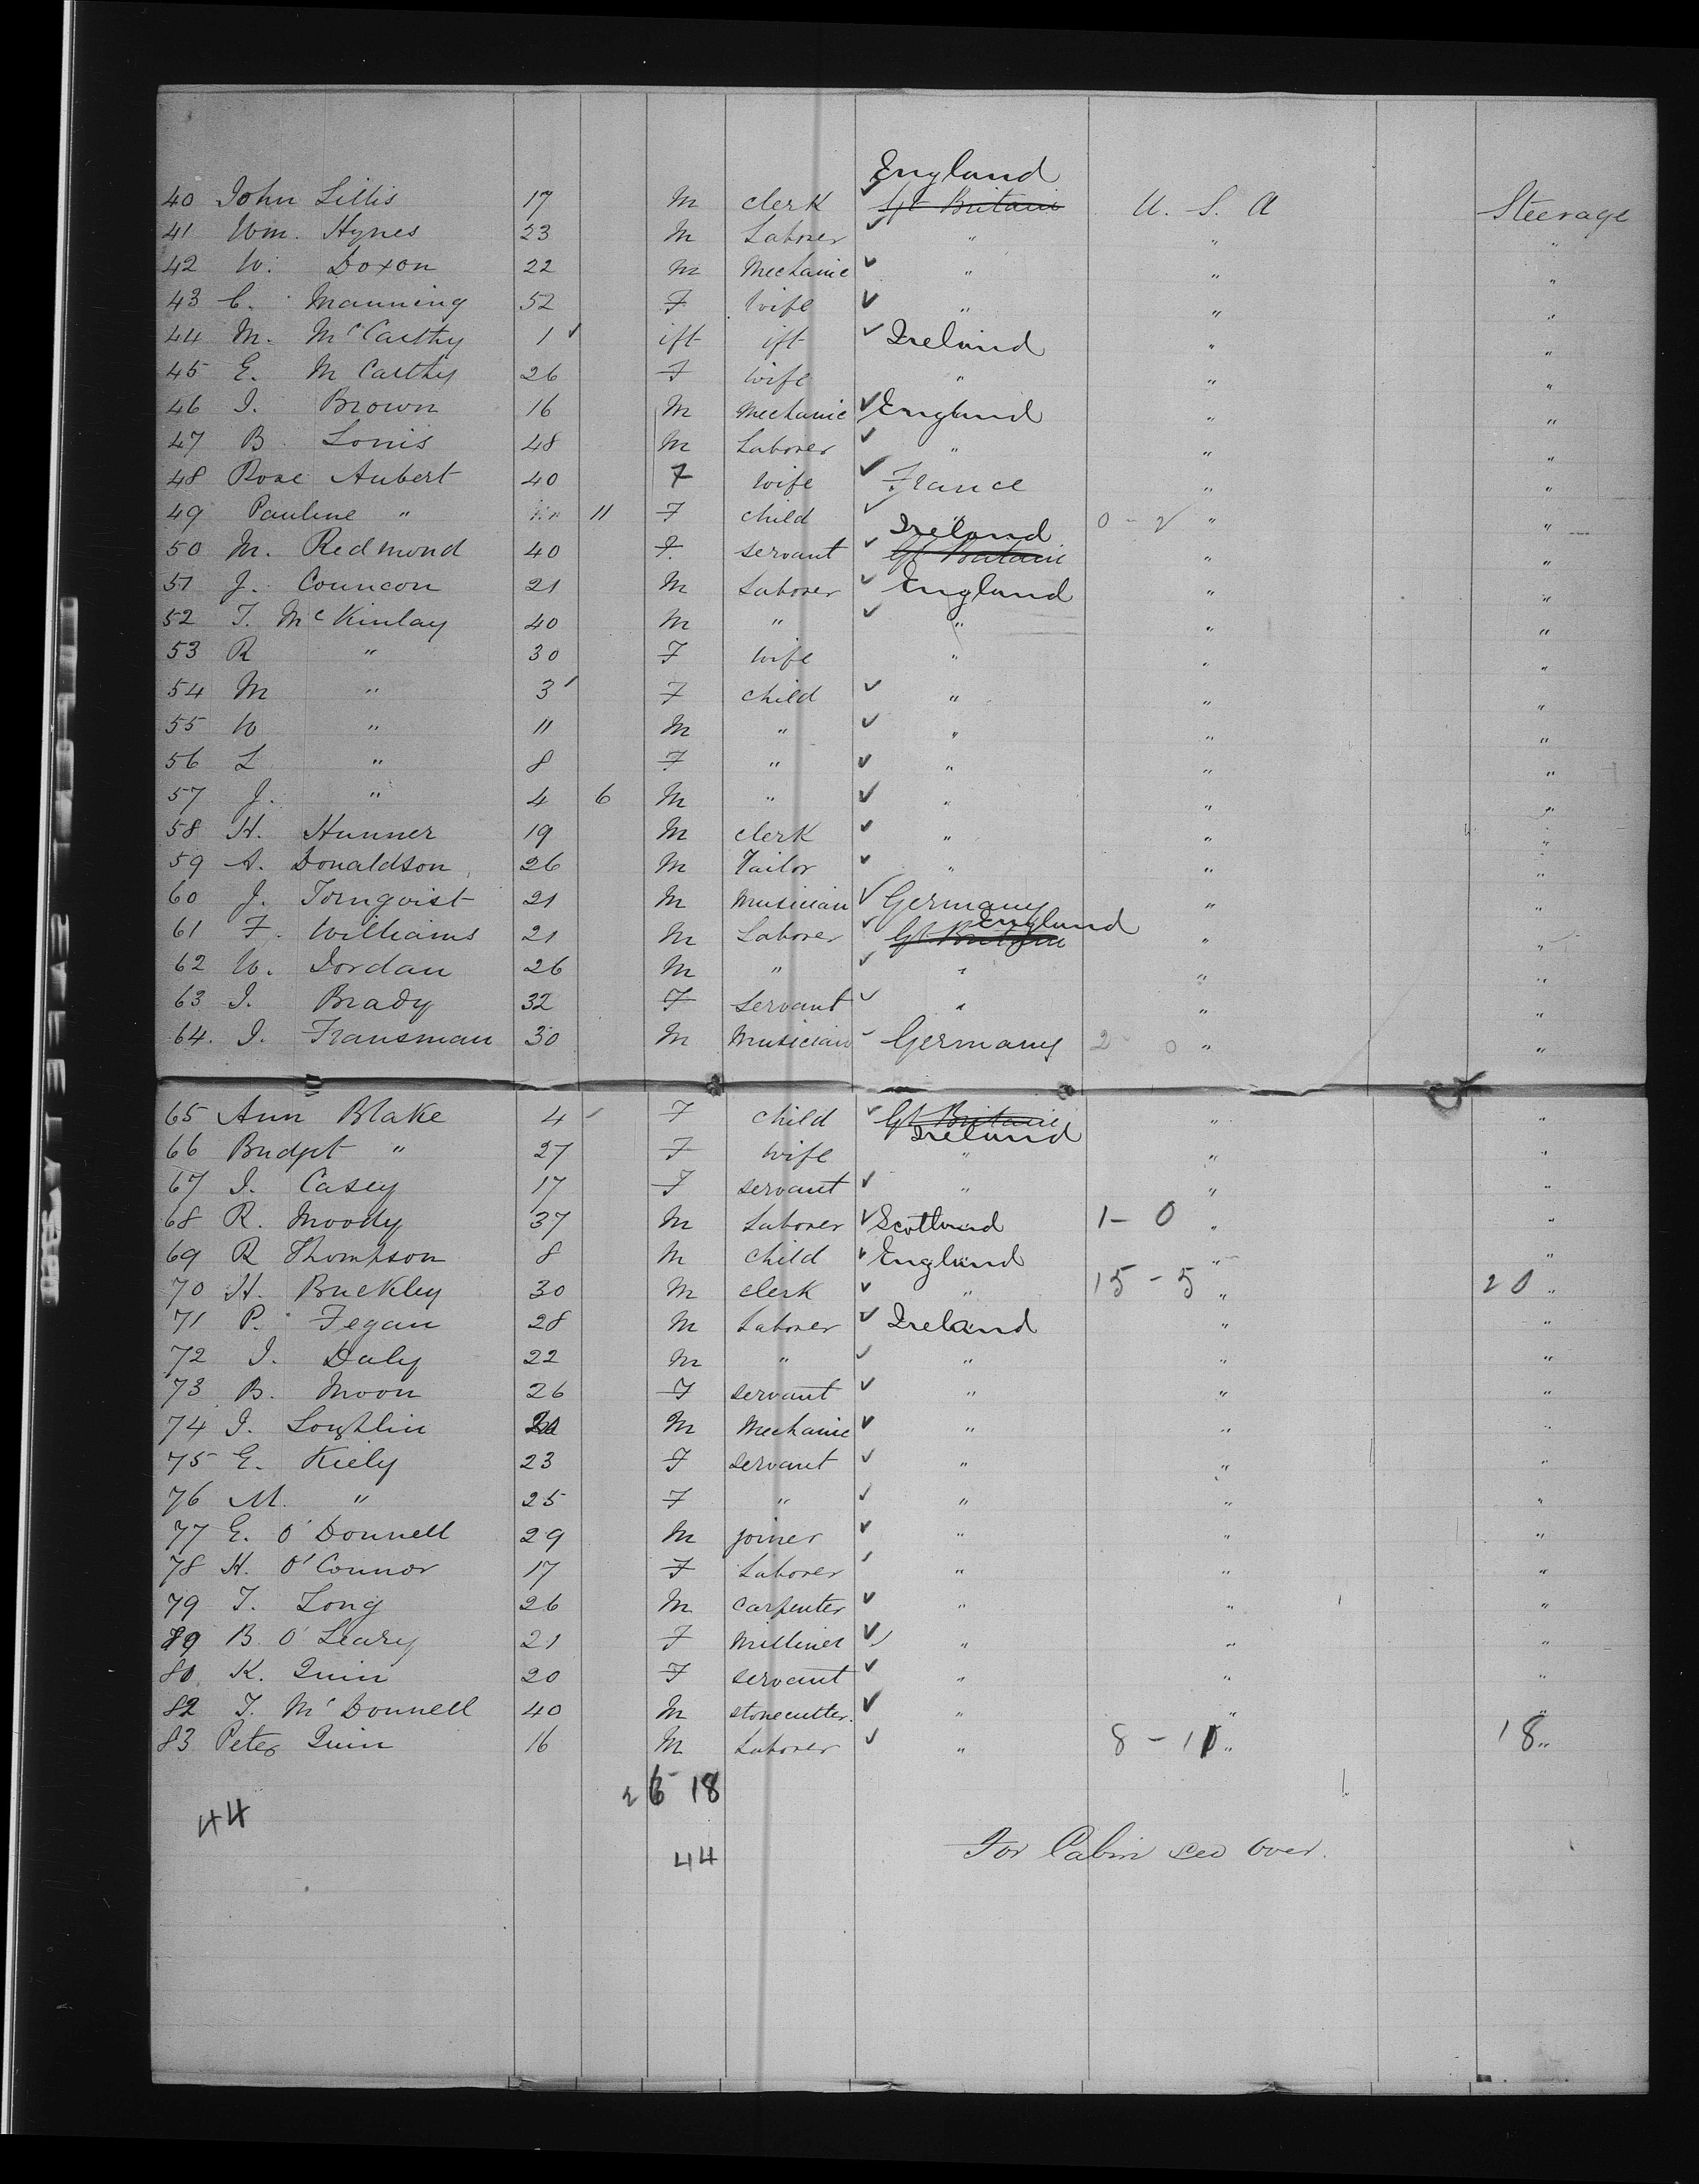 England
40 John Lillis 17 M clerk Gt Britain U. S. A Steerage
41 Wm. Hynes 23 M Laborer " " "
42 W. Doxon 22 M Mechanic " " "
43 C. Manning 52 F Wife " " "
44 M. McCarthy 1 ift ift Ireland " "
45 E. McCarthy 26 F Wife " " "
46 I. Brown 16 M Mechanic England " "
47 B. Lonis 48 M Laborer " " "
48 Rose Aubert 40 F Wife France " "
49 Pauline " 11 F child " 0 - 2 " "
Ireland
50 M. Redmond 40 F servant Gt Britain " "
51 J. Councon 21 M Laborer England " "
52 T. McKinlay 40 M " " " "
53 R " 30 F Wife " " "
54 M " 3 F child " " "
55 W " 11 M " " " "
56 L " 8 F " " " "
57 J. " 4 6 M " " " "
58 H. Hunner 19 M clerk " " "
59 A. Donaldson 26 M Tailor " " "
60 J. Tornqvist 21 M Musician Germany " "
England
61 F. Williams 21 M Laborer Gt Britain " "
62 W. Jordan 26 M " " " "
63 I. Brady 32 F Servant " " "
64. I. Fransman 30 M Musician Germany 2 - 0 " "
65 Ann Blake 4 F child Gt Britain " "
Ireland
66 Bridget " 27 F Wife " " "
67 I. Casey 17 F servant " " "
68 R. Moody 37 M Laborer Scotland 1 - 0 " "
69 R Thompson 8 M child England " "
70 H. Buckley 30 M clerk " 15 - 5 " 20 "
71 P. Fegan 28 M Laborer Ireland " "
72 I. Daly 22 M " " " "
73 B. Moon 26 F servant " " "
74 I. Loughlin M Mechanic " " "
75 E. Kiely 23 F servant " " "
76 M. " 25 F " " " "
77 E. O'Donnell 29 M joiner " " "
78 H. O'Connor 17 F Laborer " " "
79 T. Long 26 M carpenter " " "
89 B. O'Leary 21 F Milliner " " "
80. K. Quin 20 F servant " " "
82 T. McDonnell 40 M stonecutter. " " "
83 Peter Quin 16 M Laborer " 8 - 11 " 18 "
26 18
44
44
For Cabin see over.